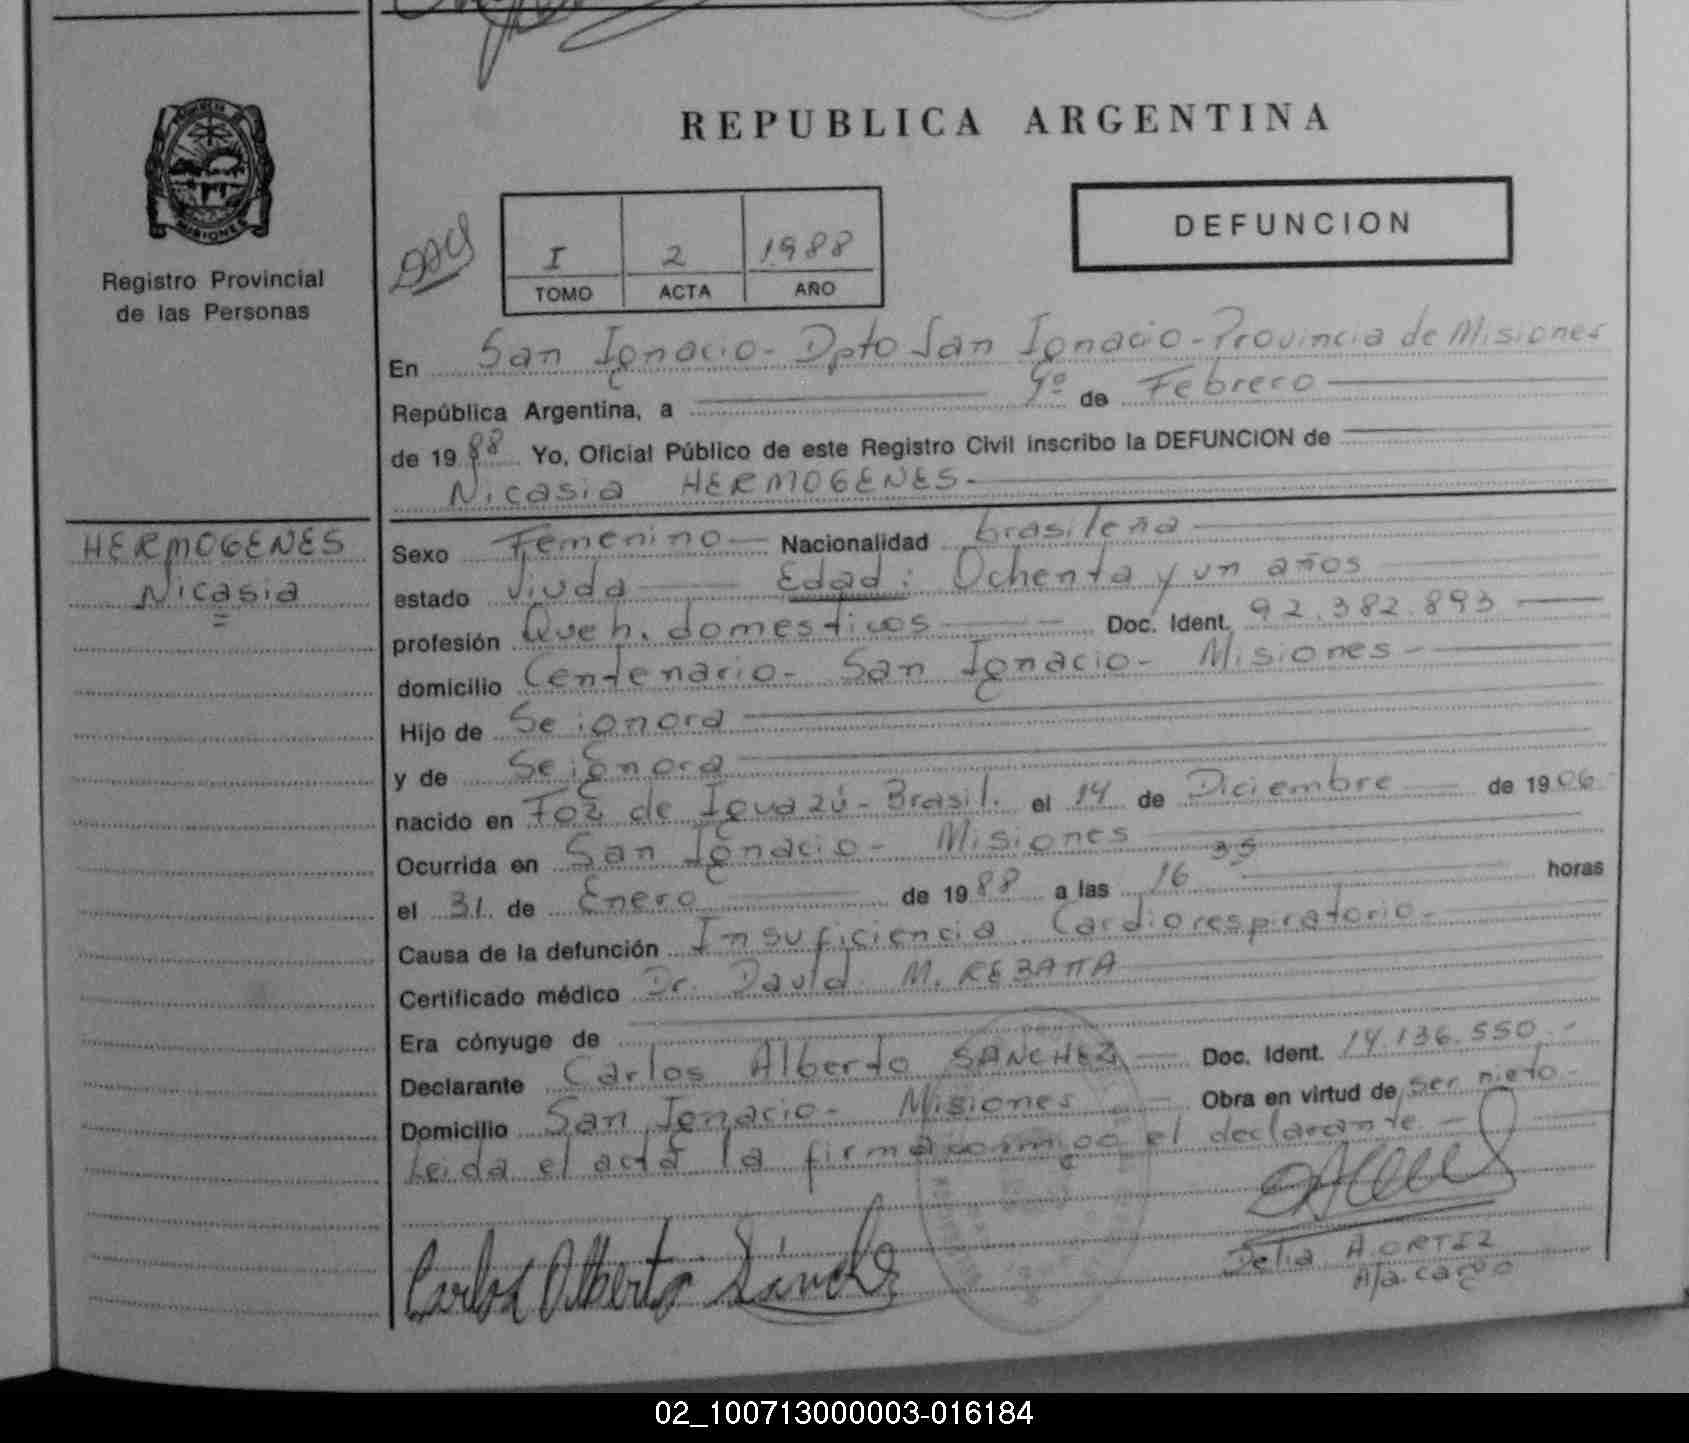 PROVINCIA DE
MISIONES
Registro Provincial
de las Personas
REPUBLICA ARGENTINA
DEFUNCION
I 2 1988
TOMO ACTA AÑO
En San Ignacio - Dpto San Ignacio - Provincia de Misiones
República Argentina, a 1º de Febrero
de 1988 Yo, Oficial Público de este Registro Civil inscribo la DEFUNCION de
Nicasia HERMOGENES.-
HERMOGENES
Nicasia
Sexo Femenino Nacionalidad brasileña
estado Viuda Edad: Ochenta y un años
profesión Queh. domesticos Doc. Ident. 92.382.893
domicilio Centenario - San Ignacio - Misiones -
Hijo de Se ignora
y de Se ignora
nacido en Foz de Iguazú - Brasil. el 14 de Diciembre de 1906
Ocurrida en San Ignacio - Misiones
el 31 de Enero de 1988 a las 16 35 horas
Causa de la defunción Insuficiencia Cardiorespiratorio -
Certificado médico Dr. David M.
Era cónyuge de
Declarante Carlos Alberto SANCHEZ Doc. Ident. 14.136.550.-
Domicilio San Ignacio - Misiones Obra en virtud de ser nieto -
Leida el acta la firma conmigo el declarante. -
Carlos Alberto Sánchez
Delia A. ORTIZ
A/a. cargo
02_100713000003-016184